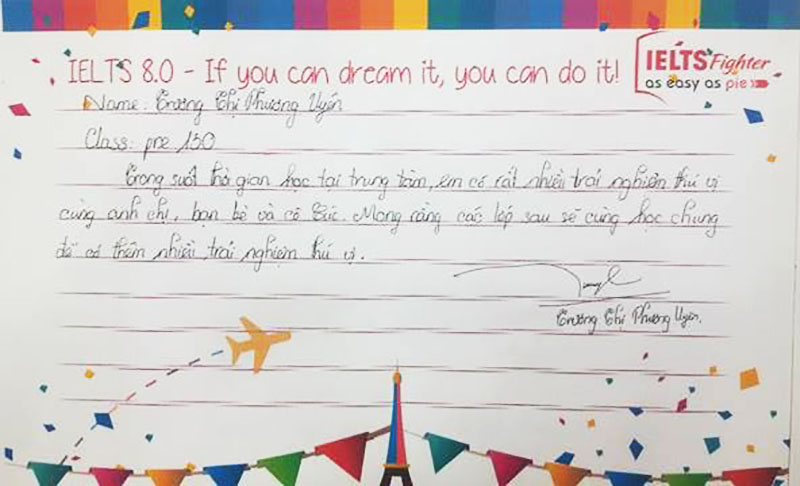 IELTS 8.0 - If you can dream it, you can do it!
IELTS Fighter
as easy as pie
Name: Trương Thị Phương Uyên
Class: pre 150
Trong suốt thời gian học tại trung tâm, em có rất nhiều trải nghiệm thú vị
cùng anh chị, bạn bè và cô Trúc. Mong rằng các lớp sau sẽ cùng học chung
để có thêm nhiều trải nghiệm thú vị.
Trương Thị Phương Uyên.